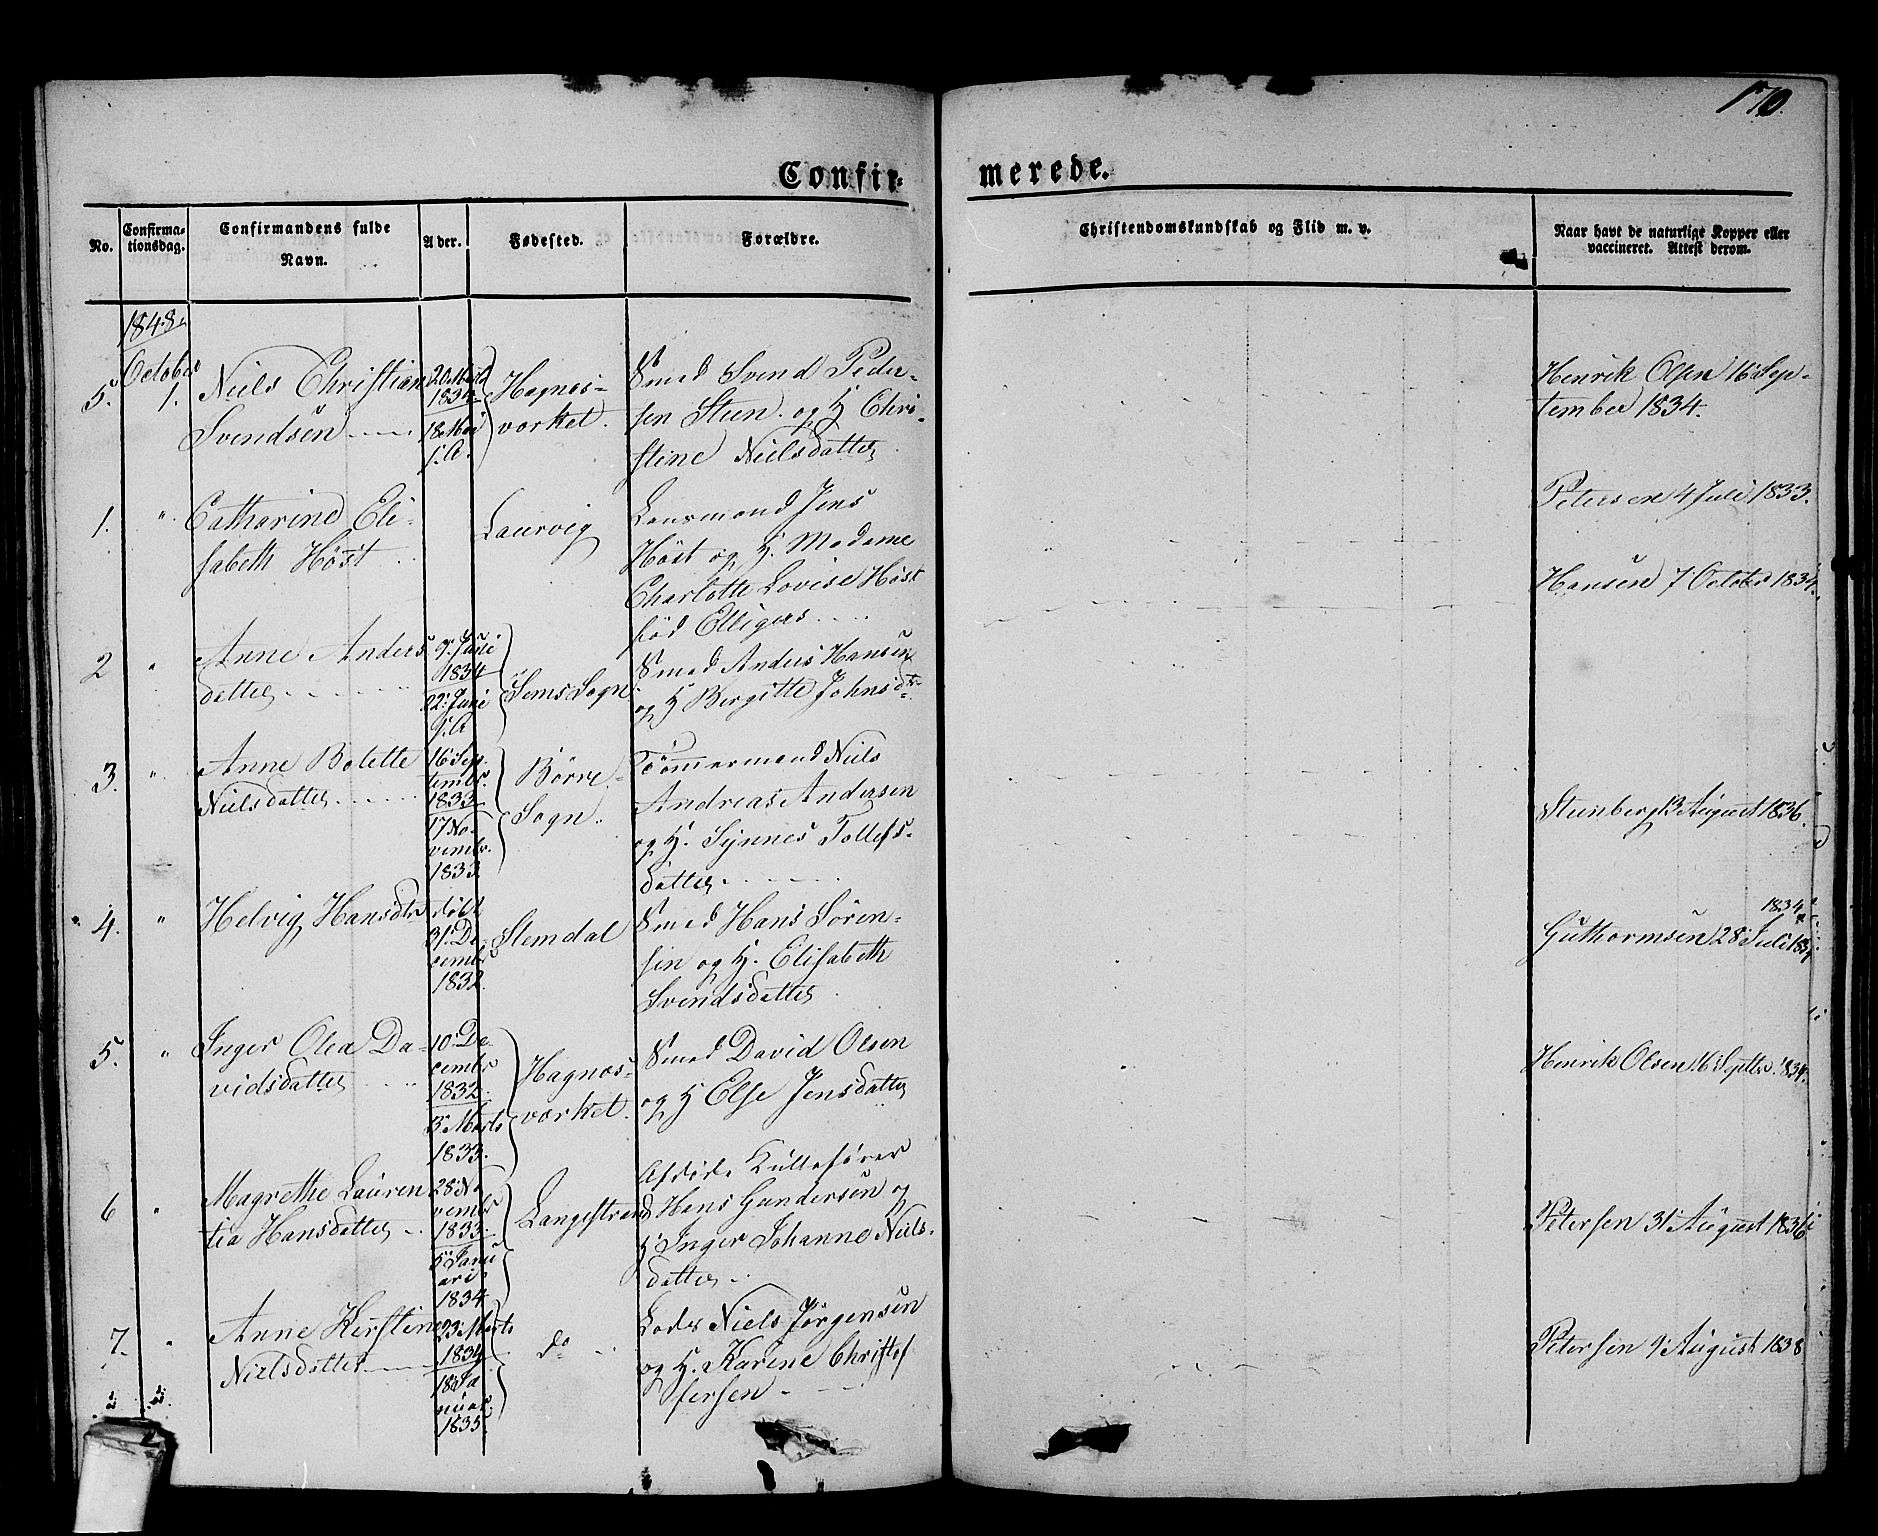 170.
Confir-
merede.
No.
Confirma-
tionsdag.
Confirmandens fulde
Navn.
Alder.
Fødested.
Forældre.
Christendomskundskab og Flid m. v.
Naar havt de naturlige Kopper eller
vaccineret. Attest derom.
1848.
October
5. 1.
Niels Christian
Svendsen
20 Marts
1834
18 Mai
s. A.
Hagnes-
værket.
Smed Svend Peder-
sen Steen. og H Chri-
stine Nielsdatter
Henrik Olsen 16 Sep-
tember 1834.
1. "
Catharine Eli-
sabeth Høst
Laurvig
Lensmand Jens
Høst og H. Madame
Charlotte Lovise Høst
fød Elligers
Petersen 4 Juli 1833.
Hansen 7 October 1834.
2 "
Anne Anders
datter
9. Juni
1834
22. Juni
s. A
Sems Sogn
Smed Anders Hansen
og H Bergitte Johnsdtr
3. "
Anne Bolette
Nielsdatter
16 Sep-
tembr.
1833
17 No-
vembr.
1833.
Börre
Sogn
Tömmermand Niels
Andreas Andersen
og H. Synnes Tollefs-
datter
Steenberg 13 August 1836.
4. "
Helvig Hansdtr
døbt
31. De
cembr
1832.
Slemdal
Smed Hans Sören-
sen og H. Elisabeth
Svendsdatter
1834
Guthormsen 28 Juli 1834
5. "
Inger Olea Da-
vidsdatter
10. De
cembr
1832.
3 Marts
1833.
Hagnes-
værket.
Smed David Olsen
og H Else Jensdatter
Henrik Olsen 16 Septbr. 1834.
6 "
Magrethe Lauren
tia Hansdatter
28 No
vembr
1833.
5 Janu
ari
1834
Langestrand
Afdöde Kullefører
Hans Gundersen og
H Inger Johanne Niels-
datter
Petersen 31 August 1836
7. "
Anne Kirstine
Nielsdatter
23 Marts
1834
18 Ja
nuar
1835.
do
Lods Niels Jørgensen
og H. Karine Christof
fersen
Petersen 9 August 1838